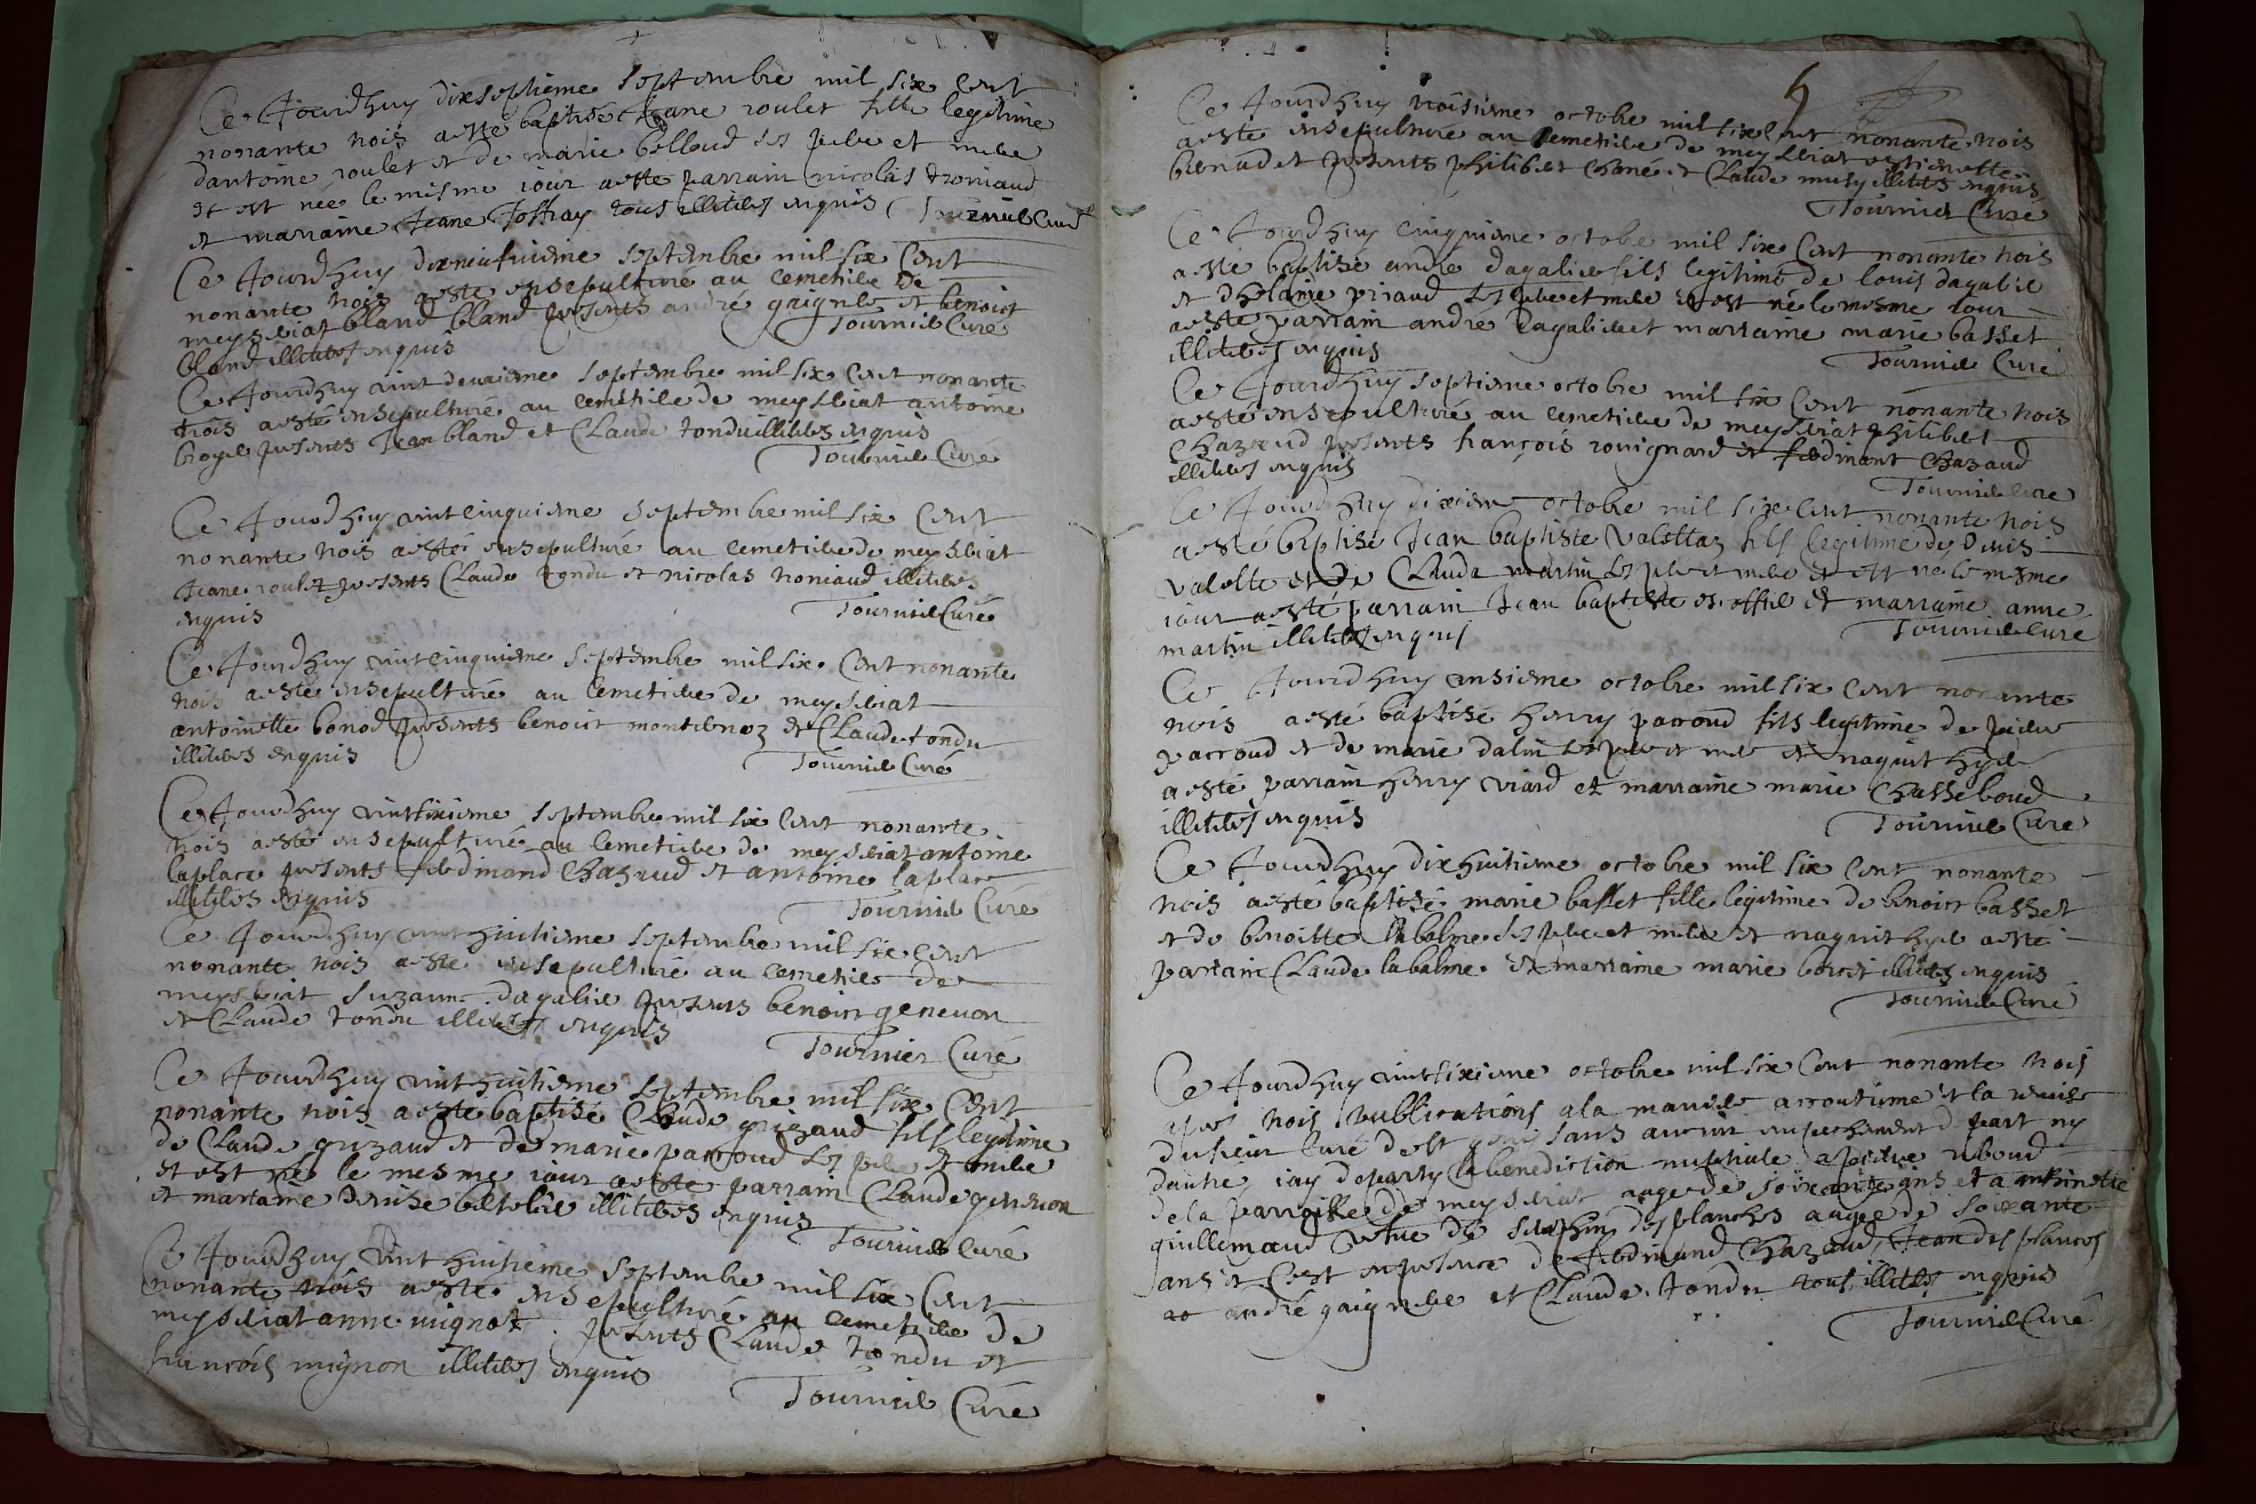 Ce Jourdhuy dixseptieme septembre mil six cent
nonante trois a esté baptisé Jeane roulet fille legitime
dantoine roulet et de marie billoud ses pere et mere
et est née le misme iour a esté parrain nicolas troniaud
et marraine Jeane Joffray tous illiteres enquis Tournier Curé
Ce Jourdhuy dixneufuieme septembre mil six Cent
nonante trois a esté ensepulturé au cemetiere de
meysseiat bland bland presents andré gaignere et benoict
bland illiteres enquis Tournier Curé
Ce Jourdhuy vint deuxieme septembre mil six Cent nonante
trois a esté ensepulturé au cemetiere de meysseiat antoine
broyer presents Jean bland et Claude tondu illiteres enquis
Tournier Curé
Ce Jourdhuy vint cinquieme septembre mil six Cent
nonante trois a esté ensepulturé au cemetiere de meysseiat
Jeane roulet presents Claude tondu et nicolas troniaud illiteres
enquis Tournier Curé
Ce Jourdhuy vint cinquieme septembre mil six Cent nonante
trois a esté ensepulturé au cemetiere de meysseiat
antoinette bonod presents benoict monternoz et Claude tondu
illiteres enquis Tournier Curé
Ce Jourdhuy vint sixieme septembre mil six Cent nonante
trois a esté ensepulturé au cemetiere de meysseiat antoine
laplace presents ferdinand Chazaud et antoine laplace
illiteres enquis Tournier Curé
Ce Jourdhuy vint huitieme septembre mil six cent
nonante trois a esté ensepulturé au cemetiere de
meysseiat suzanne dagalier presents benoict genevon
et Claude tondu illiteres enquis
Tournier Curé
Ce Jourdhuy vint huitieme septembre mil six Cent
nonante trois a esté baptisé Claude grizaud fils legitime
de Claude grizaud et de marie parroud ses pere et mere
et est né le mesme iour a esté parrain Claude genevon
et marraine denise illiteres enquis
Tournier Curé
Ce Jourdhuy vint huitieme septembre mil six Cent
nonante trois a esté ensepulturé au cemetiere de
meysseiat anne mignot presents Claude tondu et
francois mignon illiteres enquis
Tournier Curé
Ce Jourdhuy troisieme octobre mil six Cent nonante trois
a esté ensepulturé au cemetiere de meysseiat estienette
benad et presents philibert Chané et Claude musy illiteres enquis
Tournier Curé
Ce Jourdhuy cinquieme octobre mil six Cent nonante trois
a esté baptisé andré dagalier fils legitime de louis dagalier
et dhelaine piraud ses pere et mere et est né le mesme iour
a esté parrain andré dagalier et marraine marie basset
illiteres enquis Tournier Curé
Ce Jourdhuy septieme octobre mil six Cent nonante trois
a esté ensepulturé au cemetiere de meysseiat philibert
Chazaud presents françois rouignard et ferdinant Chazaud
illiteres enquis
Tournier Curé
Ce Jourdhuy dixieme octobre mil six Cent nonante trois
a esté baptisé Jean baptiste Valettaz fils legitime de denis
Valette et de Claude martin ses pere et mere et est né le mesme
iour a esté parrain Jean baptiste escoffier et marraine anne
martin illiteres enquis Tournier Curé
Ce Jourdhuy onsieme octobre mil six Cent nonante
trois a esté baptisé henry parroud fils legitime de pierre
parroud et de marie dalin ses pere et mere et naquit hyer
a esté parrain henry viard et marraine marie Chasseboud
illiteres enquis Tournier Curé
Ce Jourdhuy dixhuitieme octobre mil six Cent nonante
trois a esté baptisé marie basset fille legitime de benoict basset
et de benoitte labalme ses pere et mere et naquit hyer a esté
parrain Claude labalme et marraine marie illiteres enquis
Tournier Curé
Ce Jourdhuy vint sixieme octobre mil six Cent nonante trois
apres trois publications a la maniere accoutumé et la
du sieur Curé sans aucun empeschement de part ny
dautre iay departy la benediction nuptiale a pierre reboud
de la parroisse de meysseiat aagé de soixante ans et a antoinette
guillemaud vefue de seraphin desplanches aagée de soixante
ans et Cest en presence de ferdinand Chazaud Jean desplances
andré gaignere et Claude tondu tous illiteres enquis
Tournier Curé